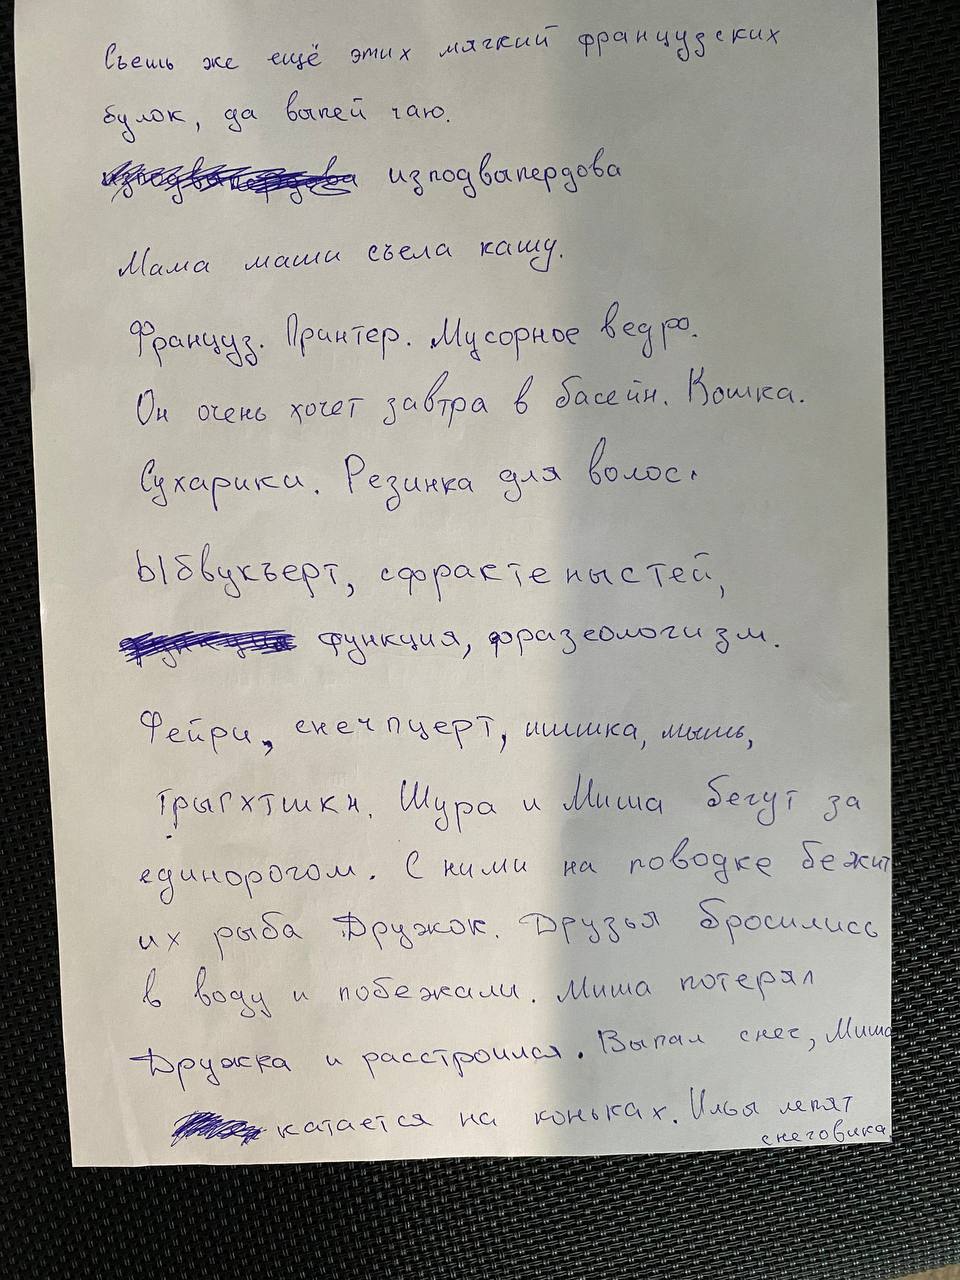 Съешь же ещё этих мягкий французских
булок, да выпей чаю.
изподвыпердова
Мама маши съела кашу.
Француз. Принтер. Мусорное ведро.
Он очень хочет завтра в басейн. Кошка.
Сухарики. Резинка для волос.
Ыбвукъерт, сфрактепыстей,
функция, фразеологизм.
Фейри, енечпцерт, шишка, мышь,
трыгхтшкн. Шура и Миша бегут за
единорогом. С ними на поводке бежит
их рыба Дружок. Друзья бросились
в воду и побежали. Миша потерял
Дружка и расстроился. Выпал снег, Миша
катается на коньках. Ильы лепят
снеговика